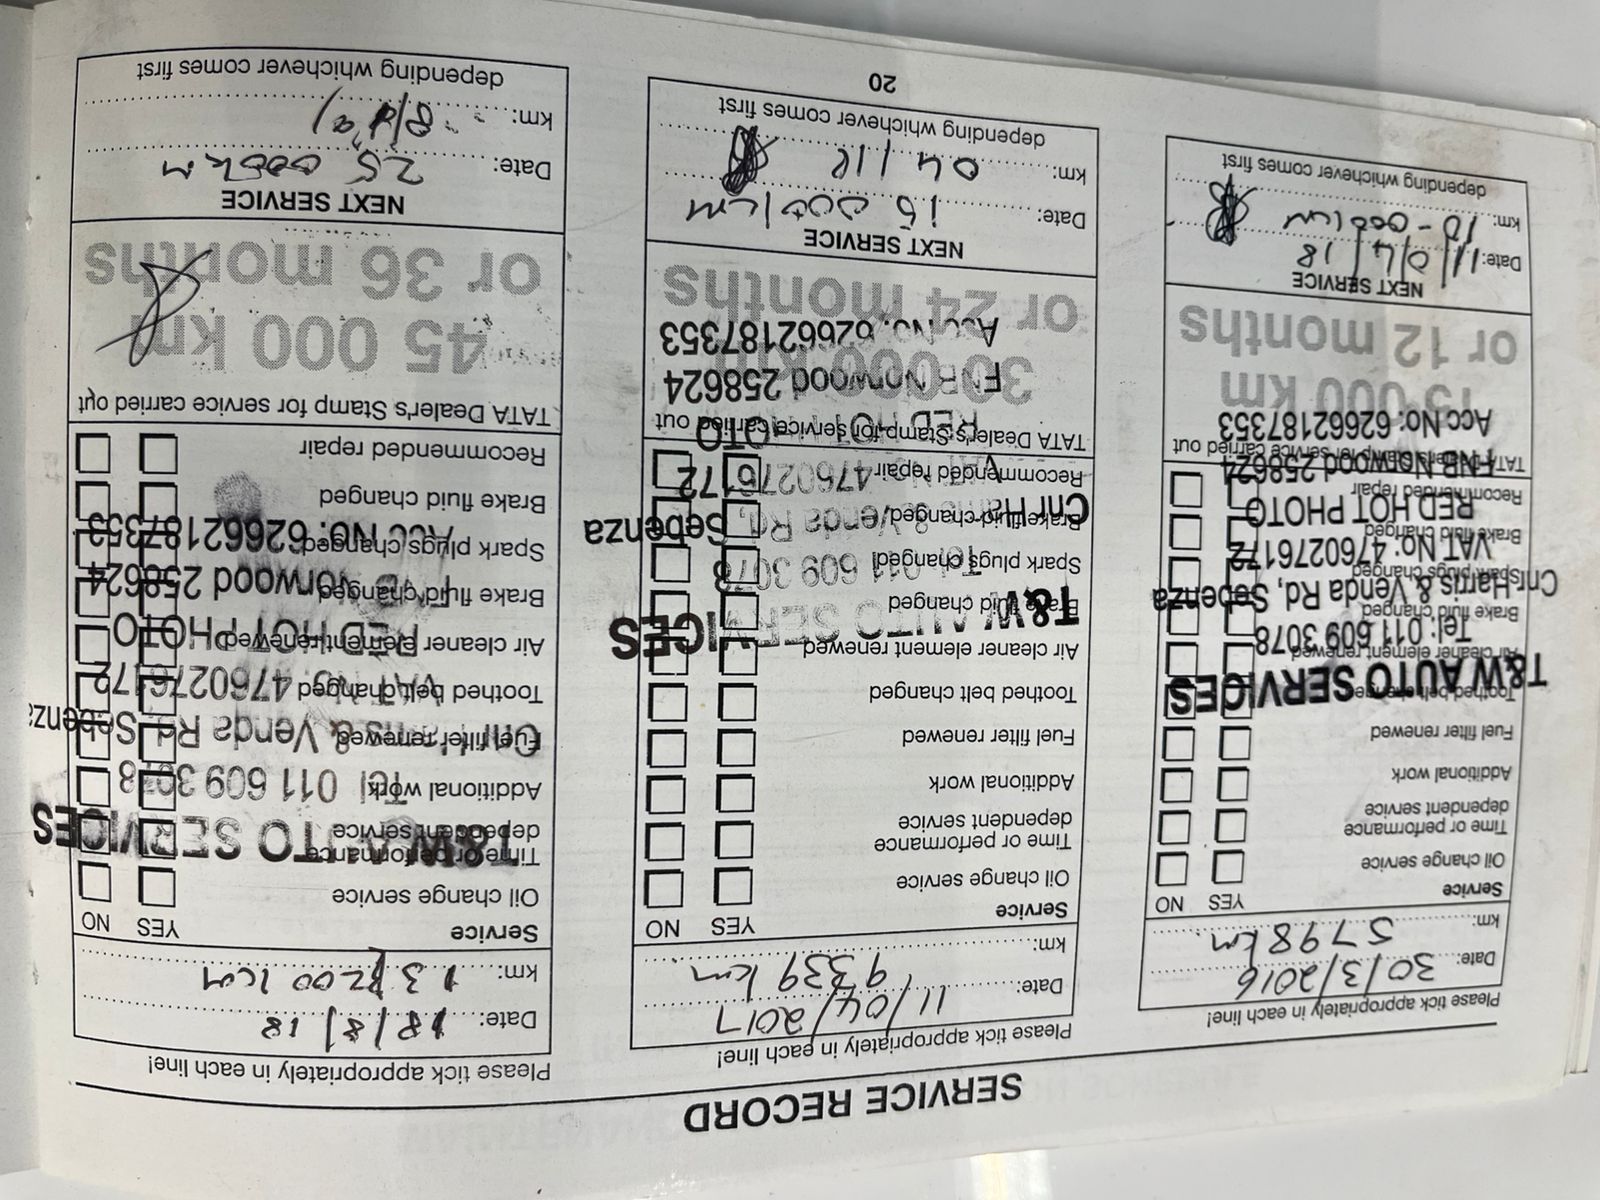 SERVICE RECORD
Please tick appropriately in each line!
Date: 30/3/2016
km: 5798km
Service YES NO
Oil change service
Time or performance
dependent service
Additional work
Fuel filter renewed
Toothed belt changed
T&W AUTO SERVICES
Air cleaner element renewed
Tel: 011 609 3078
Brake fluid changed
Cnr Harris & Venda Rd, Sebenza
Spark plugs changed
VAT No: 4760276172
Brake fluid changed
RED HOT PHOTO
Recommended repair
FNB Norwood 258624
TATA Dealer's Stamp for service carried out
Acc No: 62662187353
15 000 km
or 12 months
NEXT SERVICE
Date: 11/04/18
km: 10-000km
depending whichever comes first
Please tick appropriately in each line!
Date: 11/04/2017
km: 9339 km
Service YES NO
Oil change service
Time or performance
dependent service
Additional work
Fuel filter renewed
Toothed belt changed
Air cleaner element renewed
T&W AUTO SERVICES
Brake fluid changed
Tel: 011 609 3078
Spark plugs changed
Cnr Harris & Venda Rd, Sebenza
Brake fluid changed
4760276172
Recommended repair
RED HOT PHOTO
TATA Dealer's Stamp for service carried out
FNB Norwood 258624
30 000 km
Acc No: 62662187353
or 24 months
NEXT SERVICE
Date: 15 000km
km: 04/18
depending whichever comes first
20
Please tick appropriately in each line!
Date: 18/8/18
km: 13200km
Service YES NO
Oil change service
Time or performance
dependent service
T&W AUTO SERVICES
Additional work
Tel 011 609 3078
Fuel filter renewed
Cnr Harris & Venda Rd, Sebenza
Toothed belt changed
VAT No: 4760276172
Air cleaner element renewed
RED HOT PHOTO
Brake fluid changed
FNB Norwood 258624
Spark plugs changed
Acc No: 62662187353
Brake fluid changed
Recommended repair
TATA Dealer's Stamp for service carried out
45 000 km
or 36 months
NEXT SERVICE
Date: 25 000km
km:
depending whichever comes first